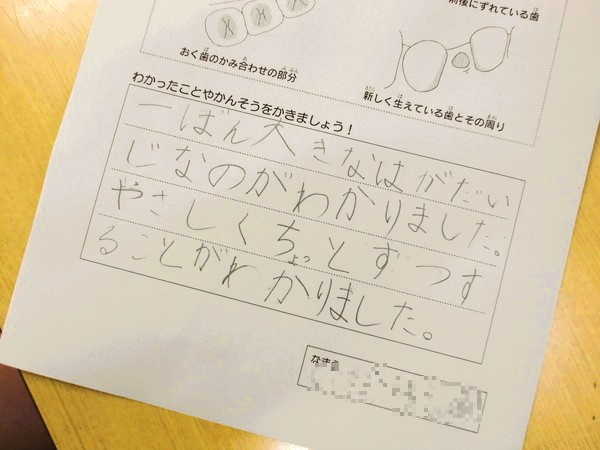 前後にずれている歯
おく歯のかみ合わせの部分
新しく生えている歯とその周り
わかったことやかんそうをかきましょう！
一ばん大きなはがだい
じなのがわかりました。
やさしくちょっとずつす
ることがわかりました。
なまえ